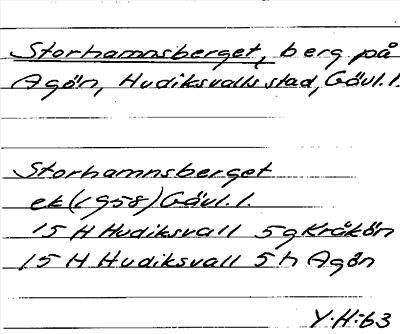 Storhamnsberget, berg på
Agön, Hudiksvalls stad, Gävl. l.
Storhamnsberget
ek (1958) Gävl. l.
15 H Hudiksvall 5g Kråkön
15 H Hudiksvall 5h Agön
Y.H-63